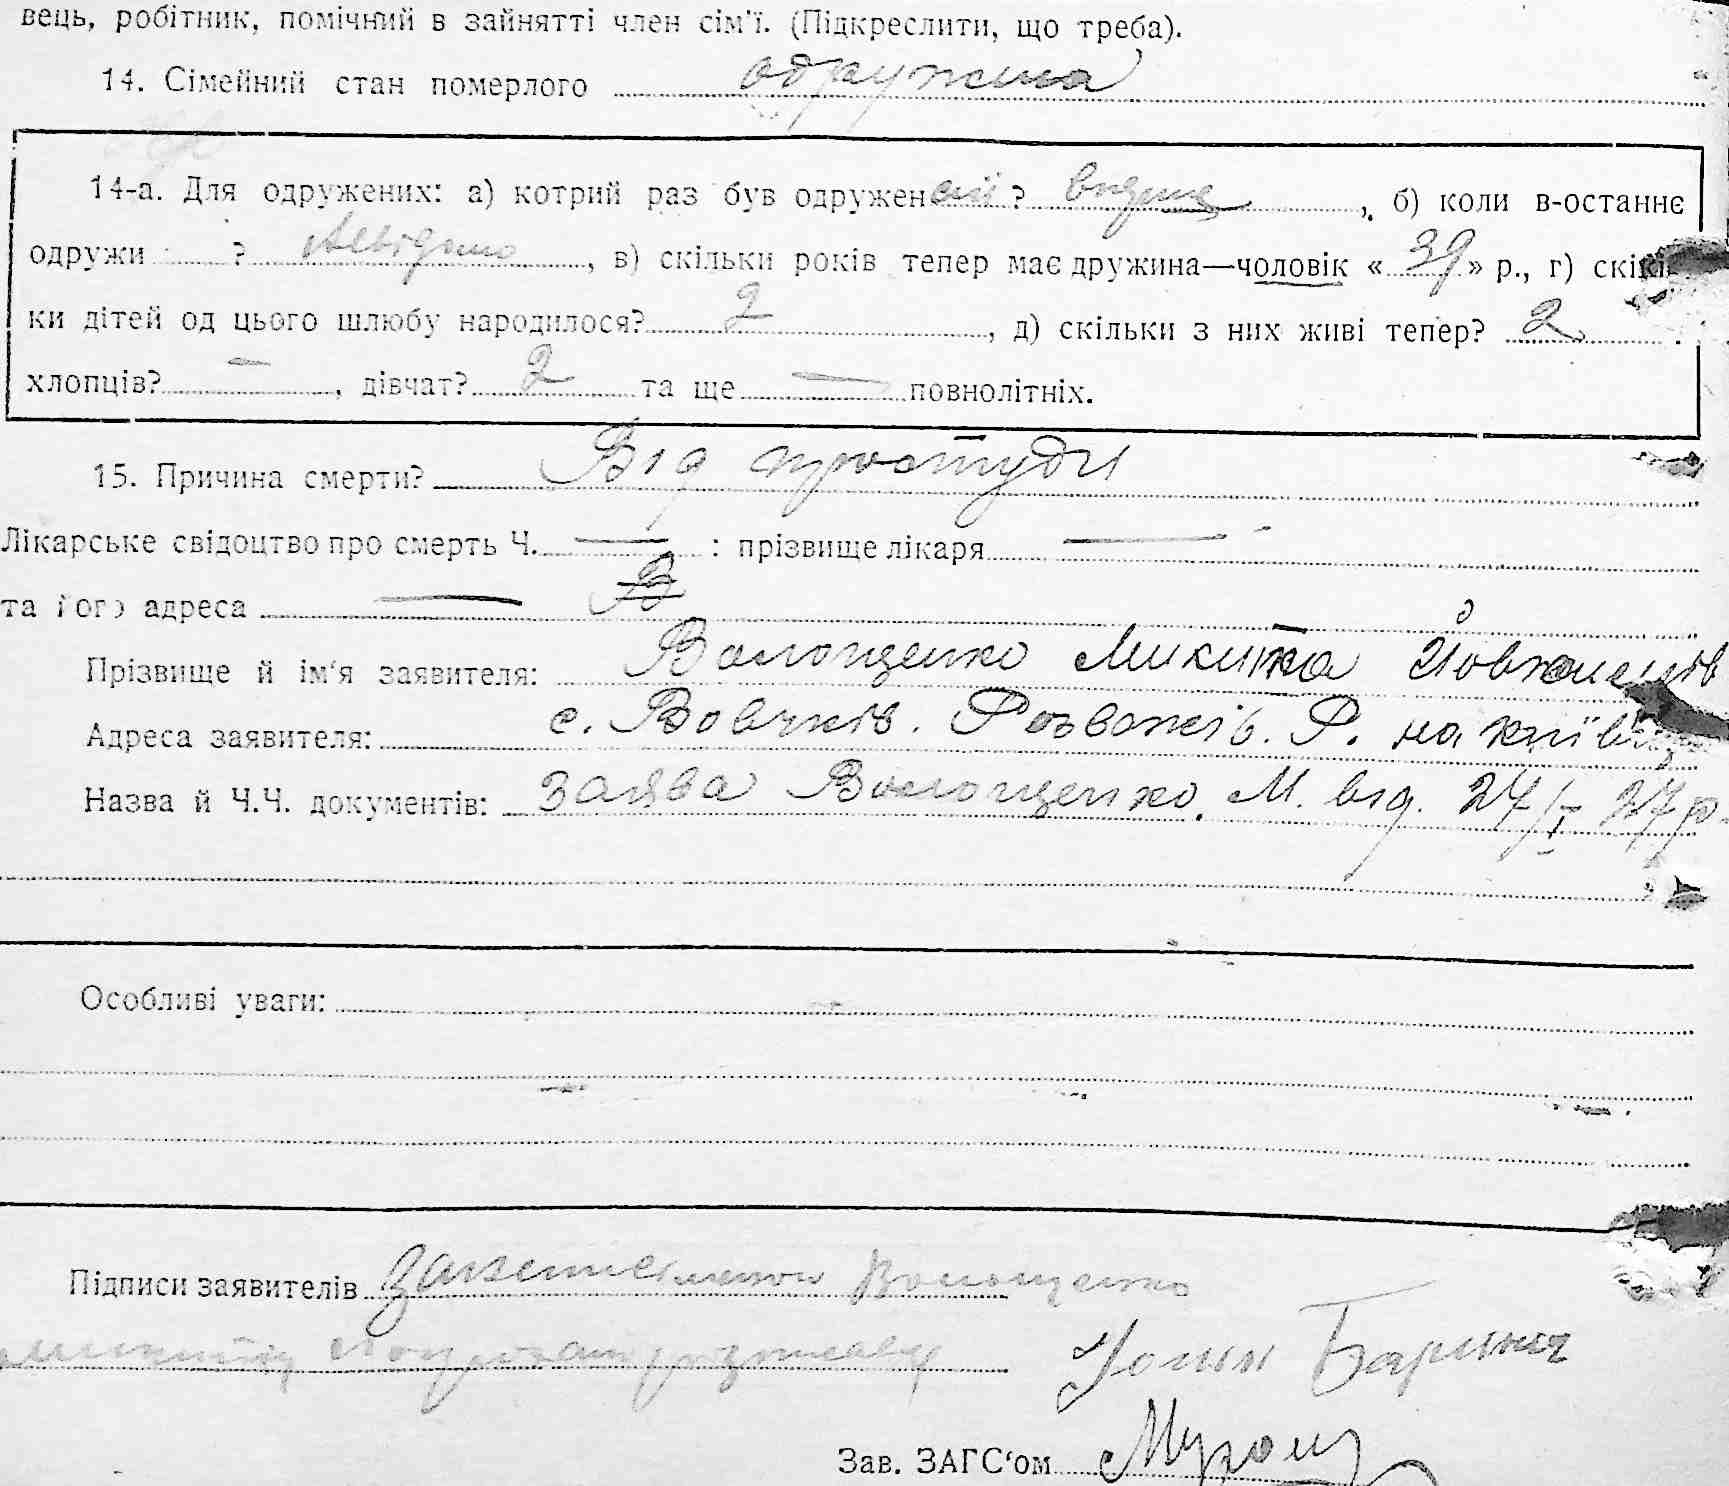 вець, робітник, помічний в зайнятті член сім'ї. (Підкреслити, що треба).
14. Сімейний стан померлого одружена
14-а. Для одружених: а) котрий раз був одружен ? вперше, б) коли в-останнє
одружи ? Невідомо, в) скільки років тепер має дружина—чоловік « 39 » р., г) скіль
ки дітей од цього шлюбу народилося? 2, д) скільки з них живі тепер? 2
хлопців? —, дівчат? 2 та ще — повнолітніх.
15. Причина смерти? Від простуди
Лікарське свідоцтво про смерть Ч. — : прізвище лікаря —
та його адреса —
Прізвище й ім'я заявителя: Волощенко Микита
Адреса заявителя: с. Вовчків. Розважів. Р. на Київ
Назва й Ч.Ч. документів: Заява Волощенко. М. від. 24/I 27 р.
Особливі уваги:
Підписи заявителів Волощенко
Зав. ЗАГС'ом